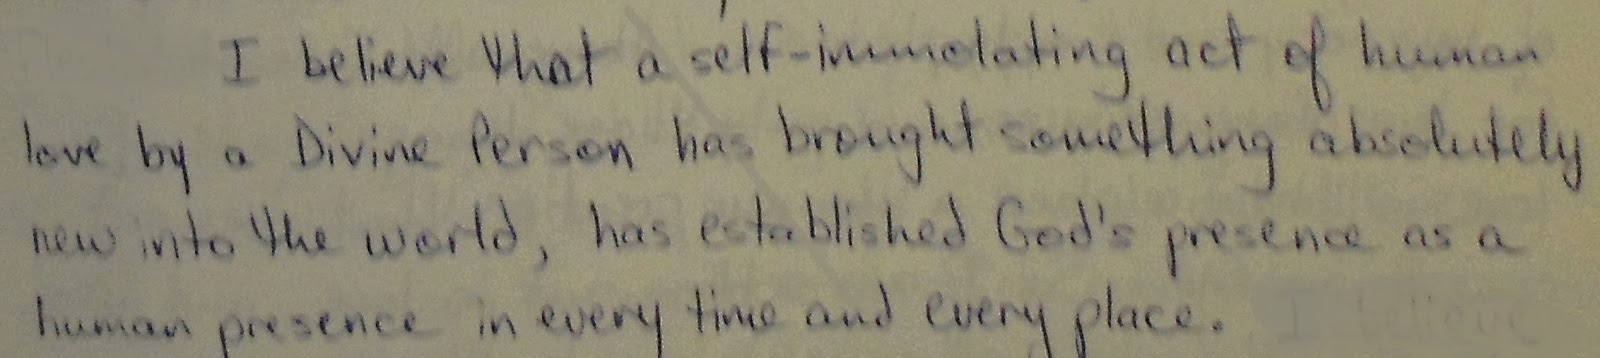 I believe that a self-immolating act of human
love by a Divine Person has brought something absolutely
new into the world, has established God's presence as a
human presence in every time and every place. I believe